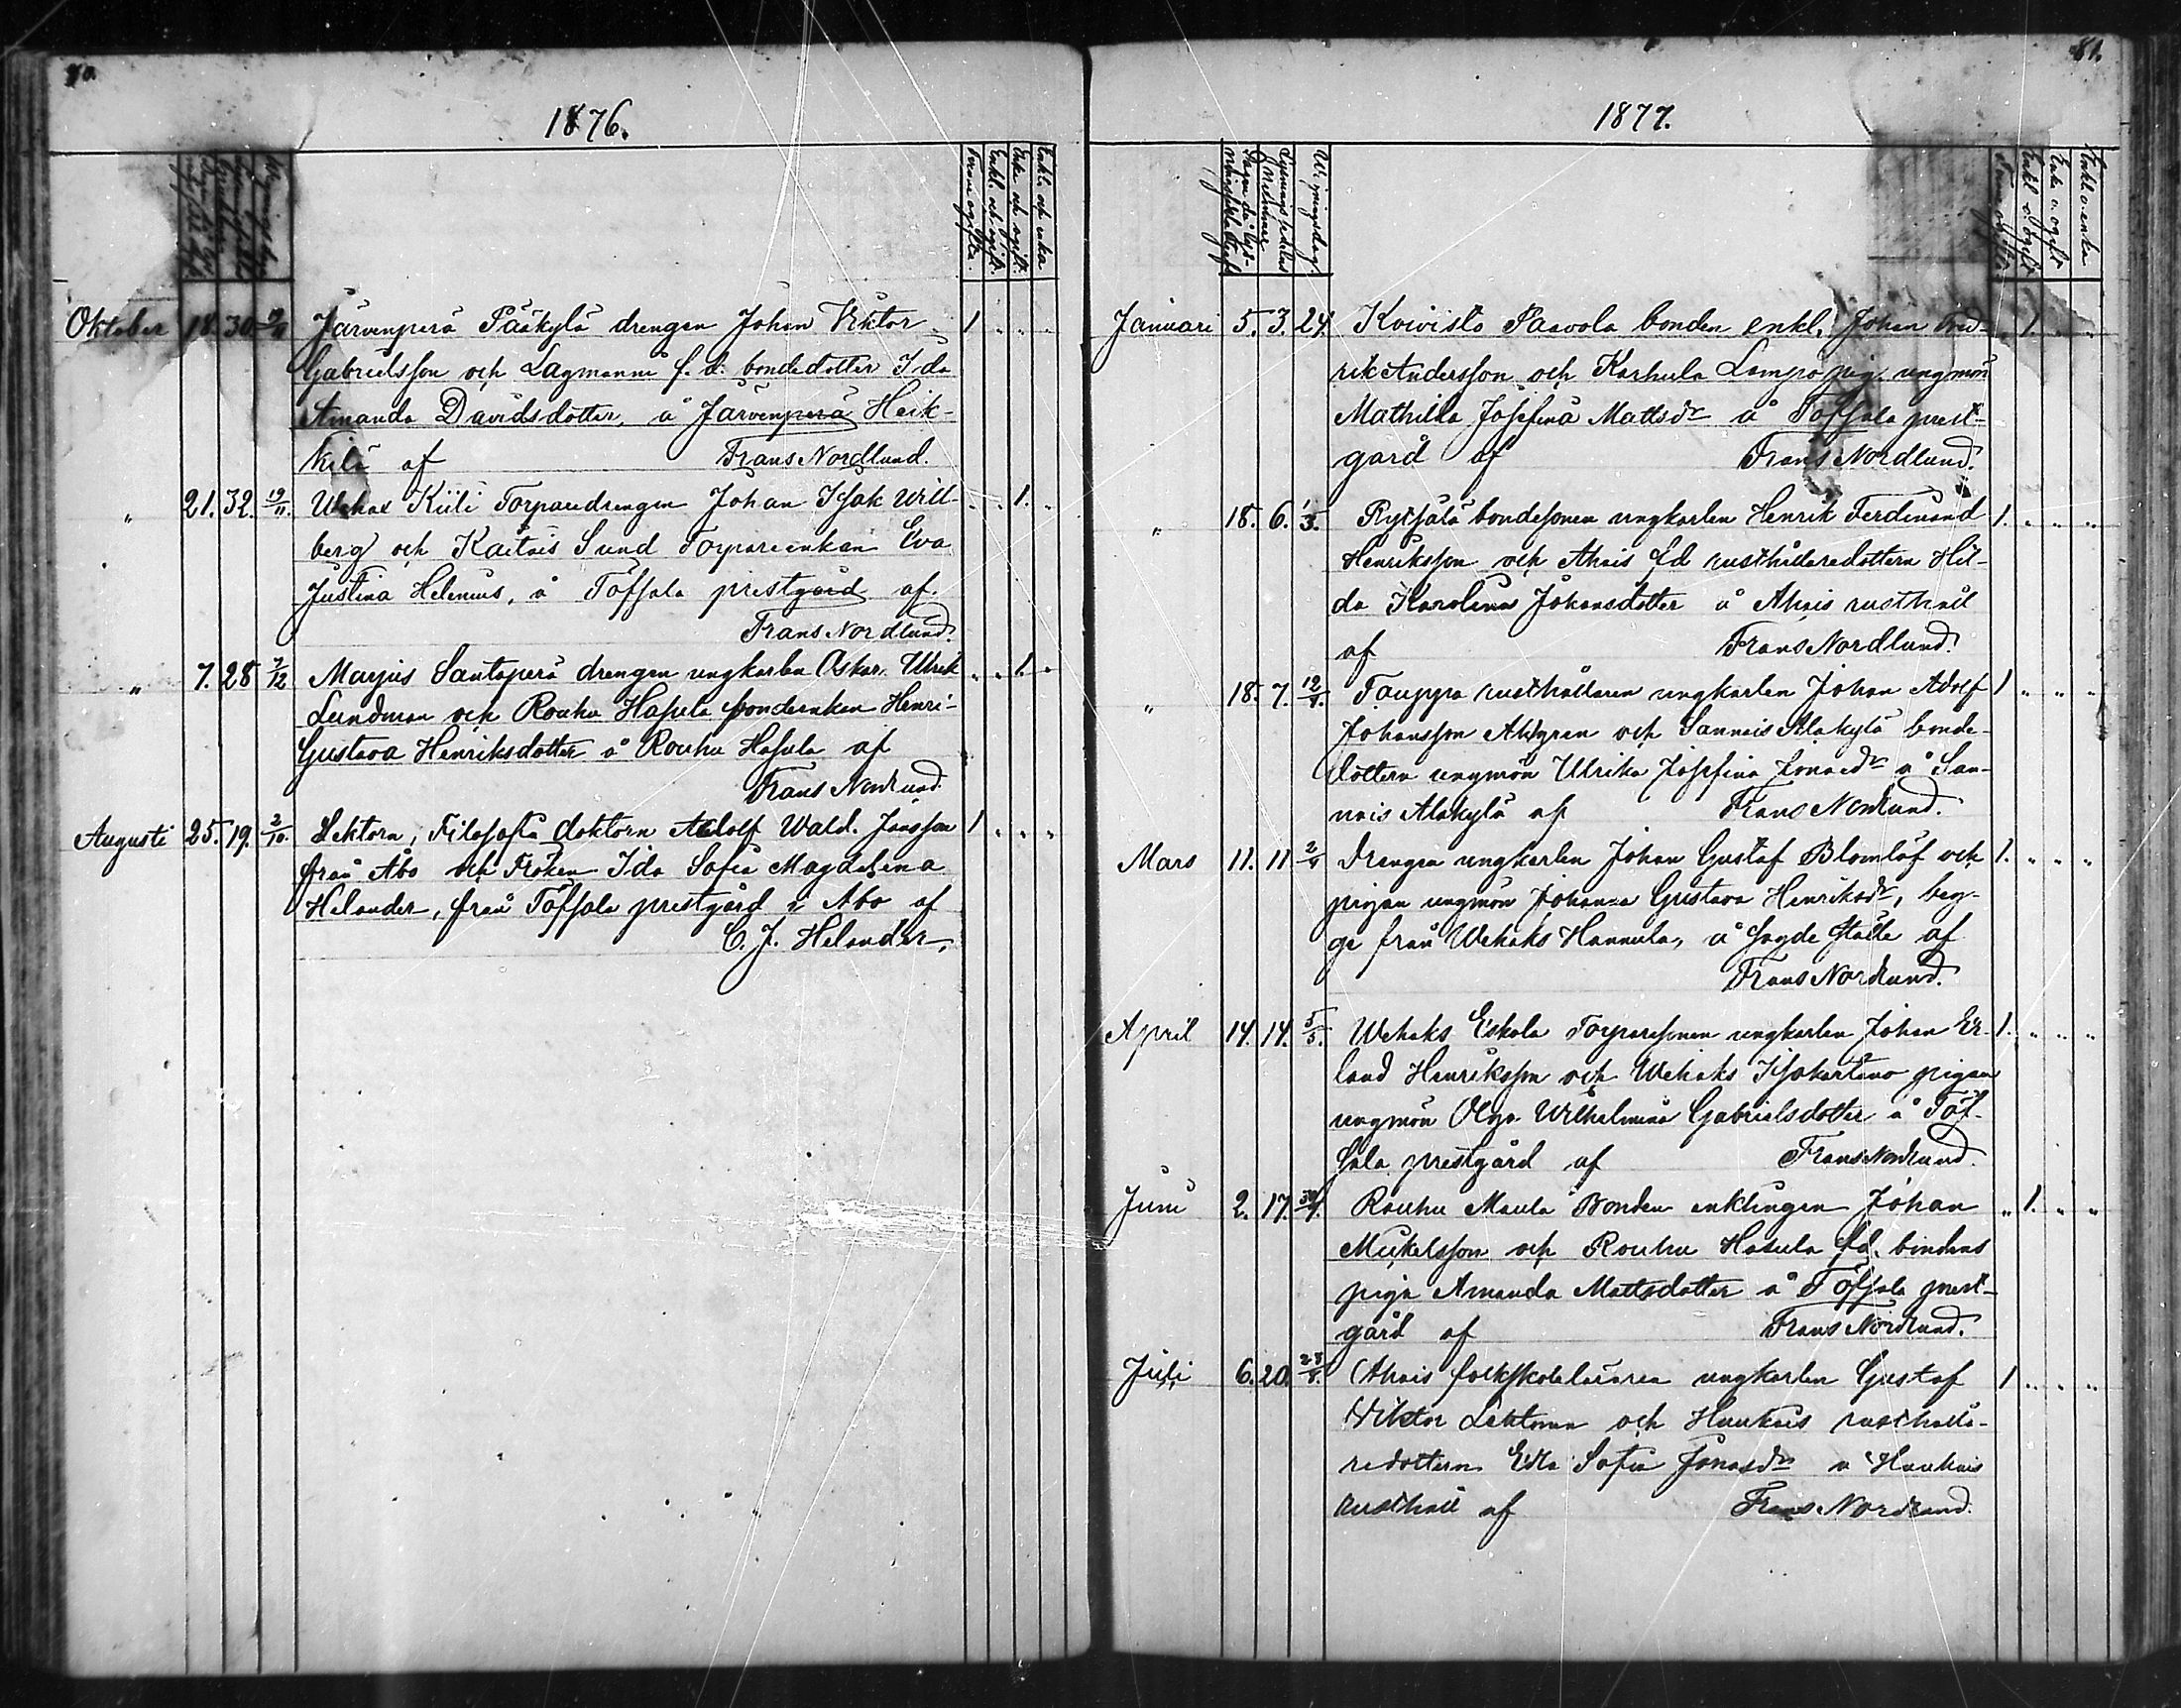 80.
1876.
Enkl. och enka
Enka och ogift.
Enkl. och ogift.
Oktober 18. 30. Järvenperä Pääkylä drengen Johan Viktor 1 . . .
Gabrielsson och Lagmanni f. d. bondedotter Ida
Amanda Davidsdotter, å Järvenperä Heik-
kilä af Frans Nordlund.
" 21. 32. 19/11. Wehax Kiili Torparedrengen Johan Isak Will- . . 1. .
berg och Kaitais Sund Torpareenkan Eva
Justina Helenius, å Töfsala prestgård af.
Frans Nordlund.
" 7. 28 7/12 Marjus Santaperä drengen ungkarlen Oskar Ulrik . . 1. .
Lundman och Rouhu Hasula bondeenkan Henri-
Gustava Henriksdotter å Rouhu Hasula af
Frans Nordlund.
Augusti 25. 19. 2/10. Lektorn, Filosofia doktorn Adolf Wald. Jonsson 1 . . .
från Åbo och Fröken Ida Sofia Magdalena
Helander, från Töfsala prestgård i Abo af
C. J. Helander.
81.
1877.
Vigningsdag
Enkl. o. ogift
Enka o. ogift
Enkl. o. enka
Januari 5. 3. 24. Koivisto Paavola bonden enkl. Johan Fred- . 1. . .
rik Andersson och Karhula Lampo pig. ungmön
Mathilda Josefina Mattsdr å Töfsala prest-
gård af Frans Nordlund.
" 18. 6. 1/3. Rytsälä bondesonen ungkarlen Henrik Ferdinand 1. . . .
Henriksson och Ahais fd rusthållaredottern Hil-
da Karolina Johansdotter å Ahais rusthåll
af Frans Nordlund.
" 18. 7. 12/4. Tauppa rusthållaren ungkarlen Johan Adolf 1 . . .
Johansson Ahlgren och Sannais Alakylä bonde-
dottern ungmön Ulrika Josefina Jonasdr å San-
nais Alakylä af Frans Nordlund.
Mars 11. 11 2/4 Drengen ungkarlen Johan Gustaf Blomlöf och 1. . . .
pigan ungmön Johanna Gustava Henriksdr, beg-
ge från Wehaks Hannula, å sagde ställe af
Frans Nordlund.
April 14. 14. 5/5. Wehaks Eskola Torparesonen ungkarlen Johan Er- 1. . . .
land Henriksson och Wehaks Isokartano pigan
ungmön Olga Wilhelmina Gabrielsdotter å Töf-
sala prestgård af Frans Nordlund.
Juni 2. 17. Rouhu Maula Bonden enklingen Johan " 1. . "
Mickelsson och Rouhu Hasula fd. bondens
piga Amanda Mattsdotter å Töfsala prest-
gård af Frans Nordlund.
Juli 6. 20. 28/8. Ahais folkskoleläraren ungkarlen Gustaf 1 . . .
Viktor Lehtonen och Haukais rusthålla-
redottern Edla Sofia Jonasdr å Haukais
rusthåll af Frans Nordlund.